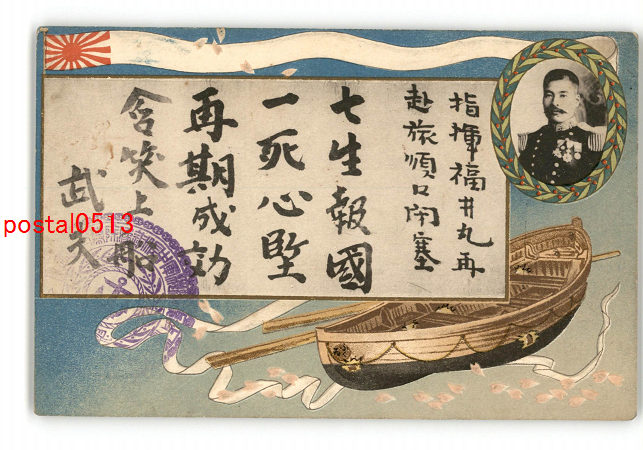 指揮福井丸再
赴旅順口閉塞
七生報國
一死心堅
再期成効
含笑上船
武夫
postal0513